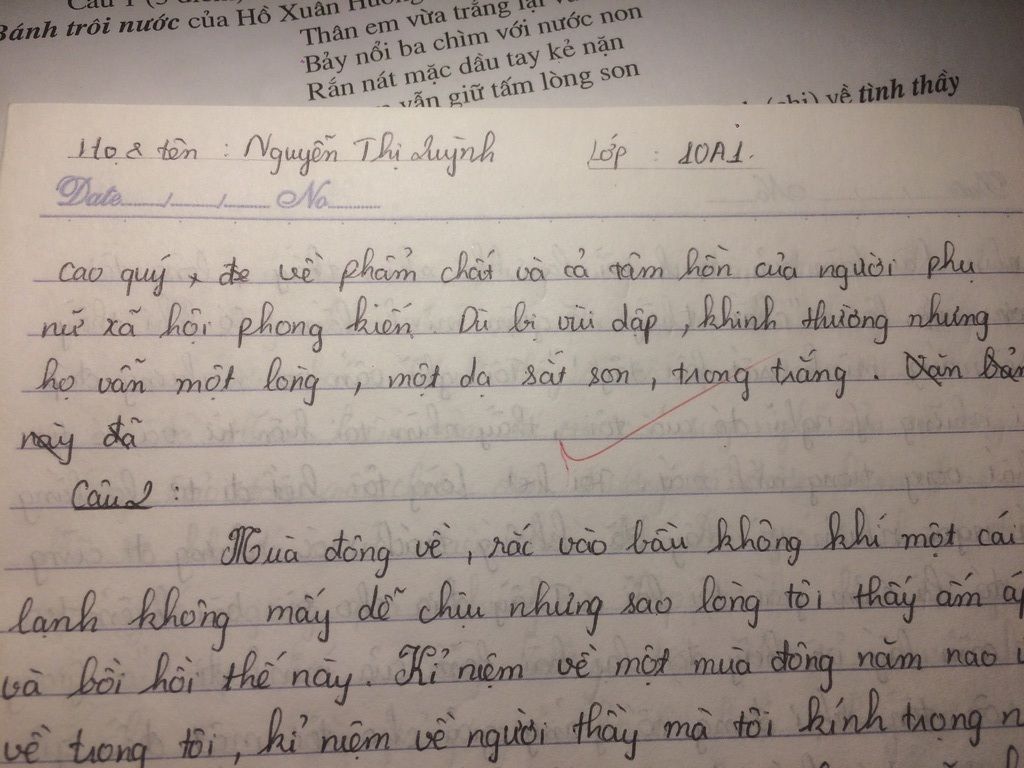 Câu 1 (3 điểm)
Bánh trôi nước của Hồ Xuân Hương
Thân em vừa trắng lại
Bảy nổi ba chìm với nước non
Rắn nát mặc dầu tay kẻ nặn
vẫn giữ tấm lòng son
(chị) về tình thầy
Họ & tên : Nguyễn Thị Quỳnh Lớp : 10A1.
Date / / No
cao quý về phẩm chất và cả tâm hồn của người phụ
nữ xã hội phong kiến. Dù bị vùi dập, khinh thường nhưng
họ vẫn một lòng, một dạ sắt son, trong trắng. Văn bản
này đã
Câu 2 :
Mùa đông về, rắc vào bầu không khí một cái
lạnh không mấy dễ chịu nhưng sao lòng tôi thấy ấm áp
và bồi hồi thế này. Kỉ niệm về một mùa đông năm nao
về trong tôi, kỉ niệm về người thầy mà tôi kính trọng